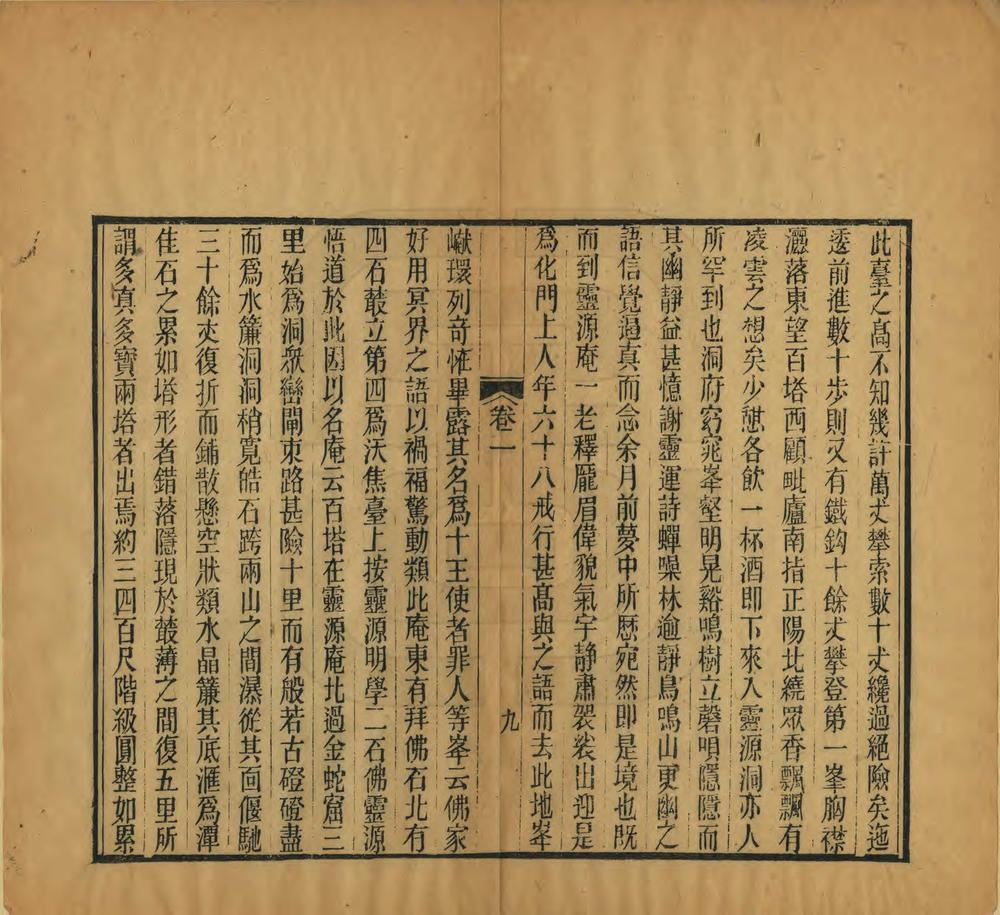 此臺之高不知幾許萬丈攀索數十丈纔過絕險矣迤
逶前進數十步則又有鐵鈎十餘丈攀登第一峯胸襟
灑落東望百塔西顧毗廬南指正陽北繞眾香飄飄有
凌雲之想矣少憇各飲一杯酒即下來入靈源洞亦人
所罕到也洞府窈窕峯壑明晃谿鳴樹立磬唄隱隱而
其幽靜益甚憶謝靈運詩蟬噪林逾靜鳥鳴山更幽之
語信覺逼真而念余月前夢中所歴宛然即是境也既
而到靈源庵一老釋厖眉偉貌氣宇静肅袈裟出迎是
爲化門上人年六十八戒行甚高與之語而去此地峯
卷二
九
巘環列竒恠畢露其名爲十王使者罪人等峯云佛家
好用冥界之語以禍福驚動類此庵東有拜佛石北有
四石叢立第四爲沃焦臺上按靈源明學二石佛靈源
悟道於此因以名庵云百塔在靈源庵北過金蛇窟三
里始爲洞衆巒閘束路甚險十里而有般若古磴磴盡
而爲水簾洞洞稍寛皓石跨兩山之間瀑從其面偃馳
三十餘丈復折而鋪散懸空狀類水晶簾其底滙爲潭
佳石之累如塔形者錯落隱現於叢薄之間復五里所
謂多真多寶兩塔者出焉約三四百尺階級圓整如累